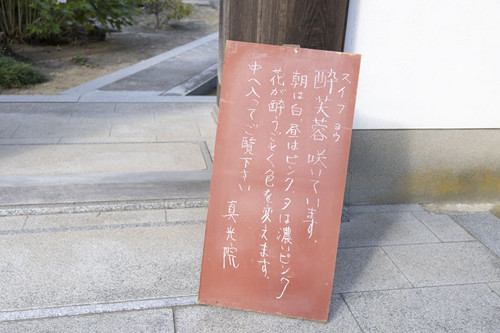 スイフヨウ
酔芙蓉 咲いています。
朝は白、昼はピンク、夕は濃いピンク
花が酔うごとく色を変えます。
中へ入ってご覧下さい
真光院